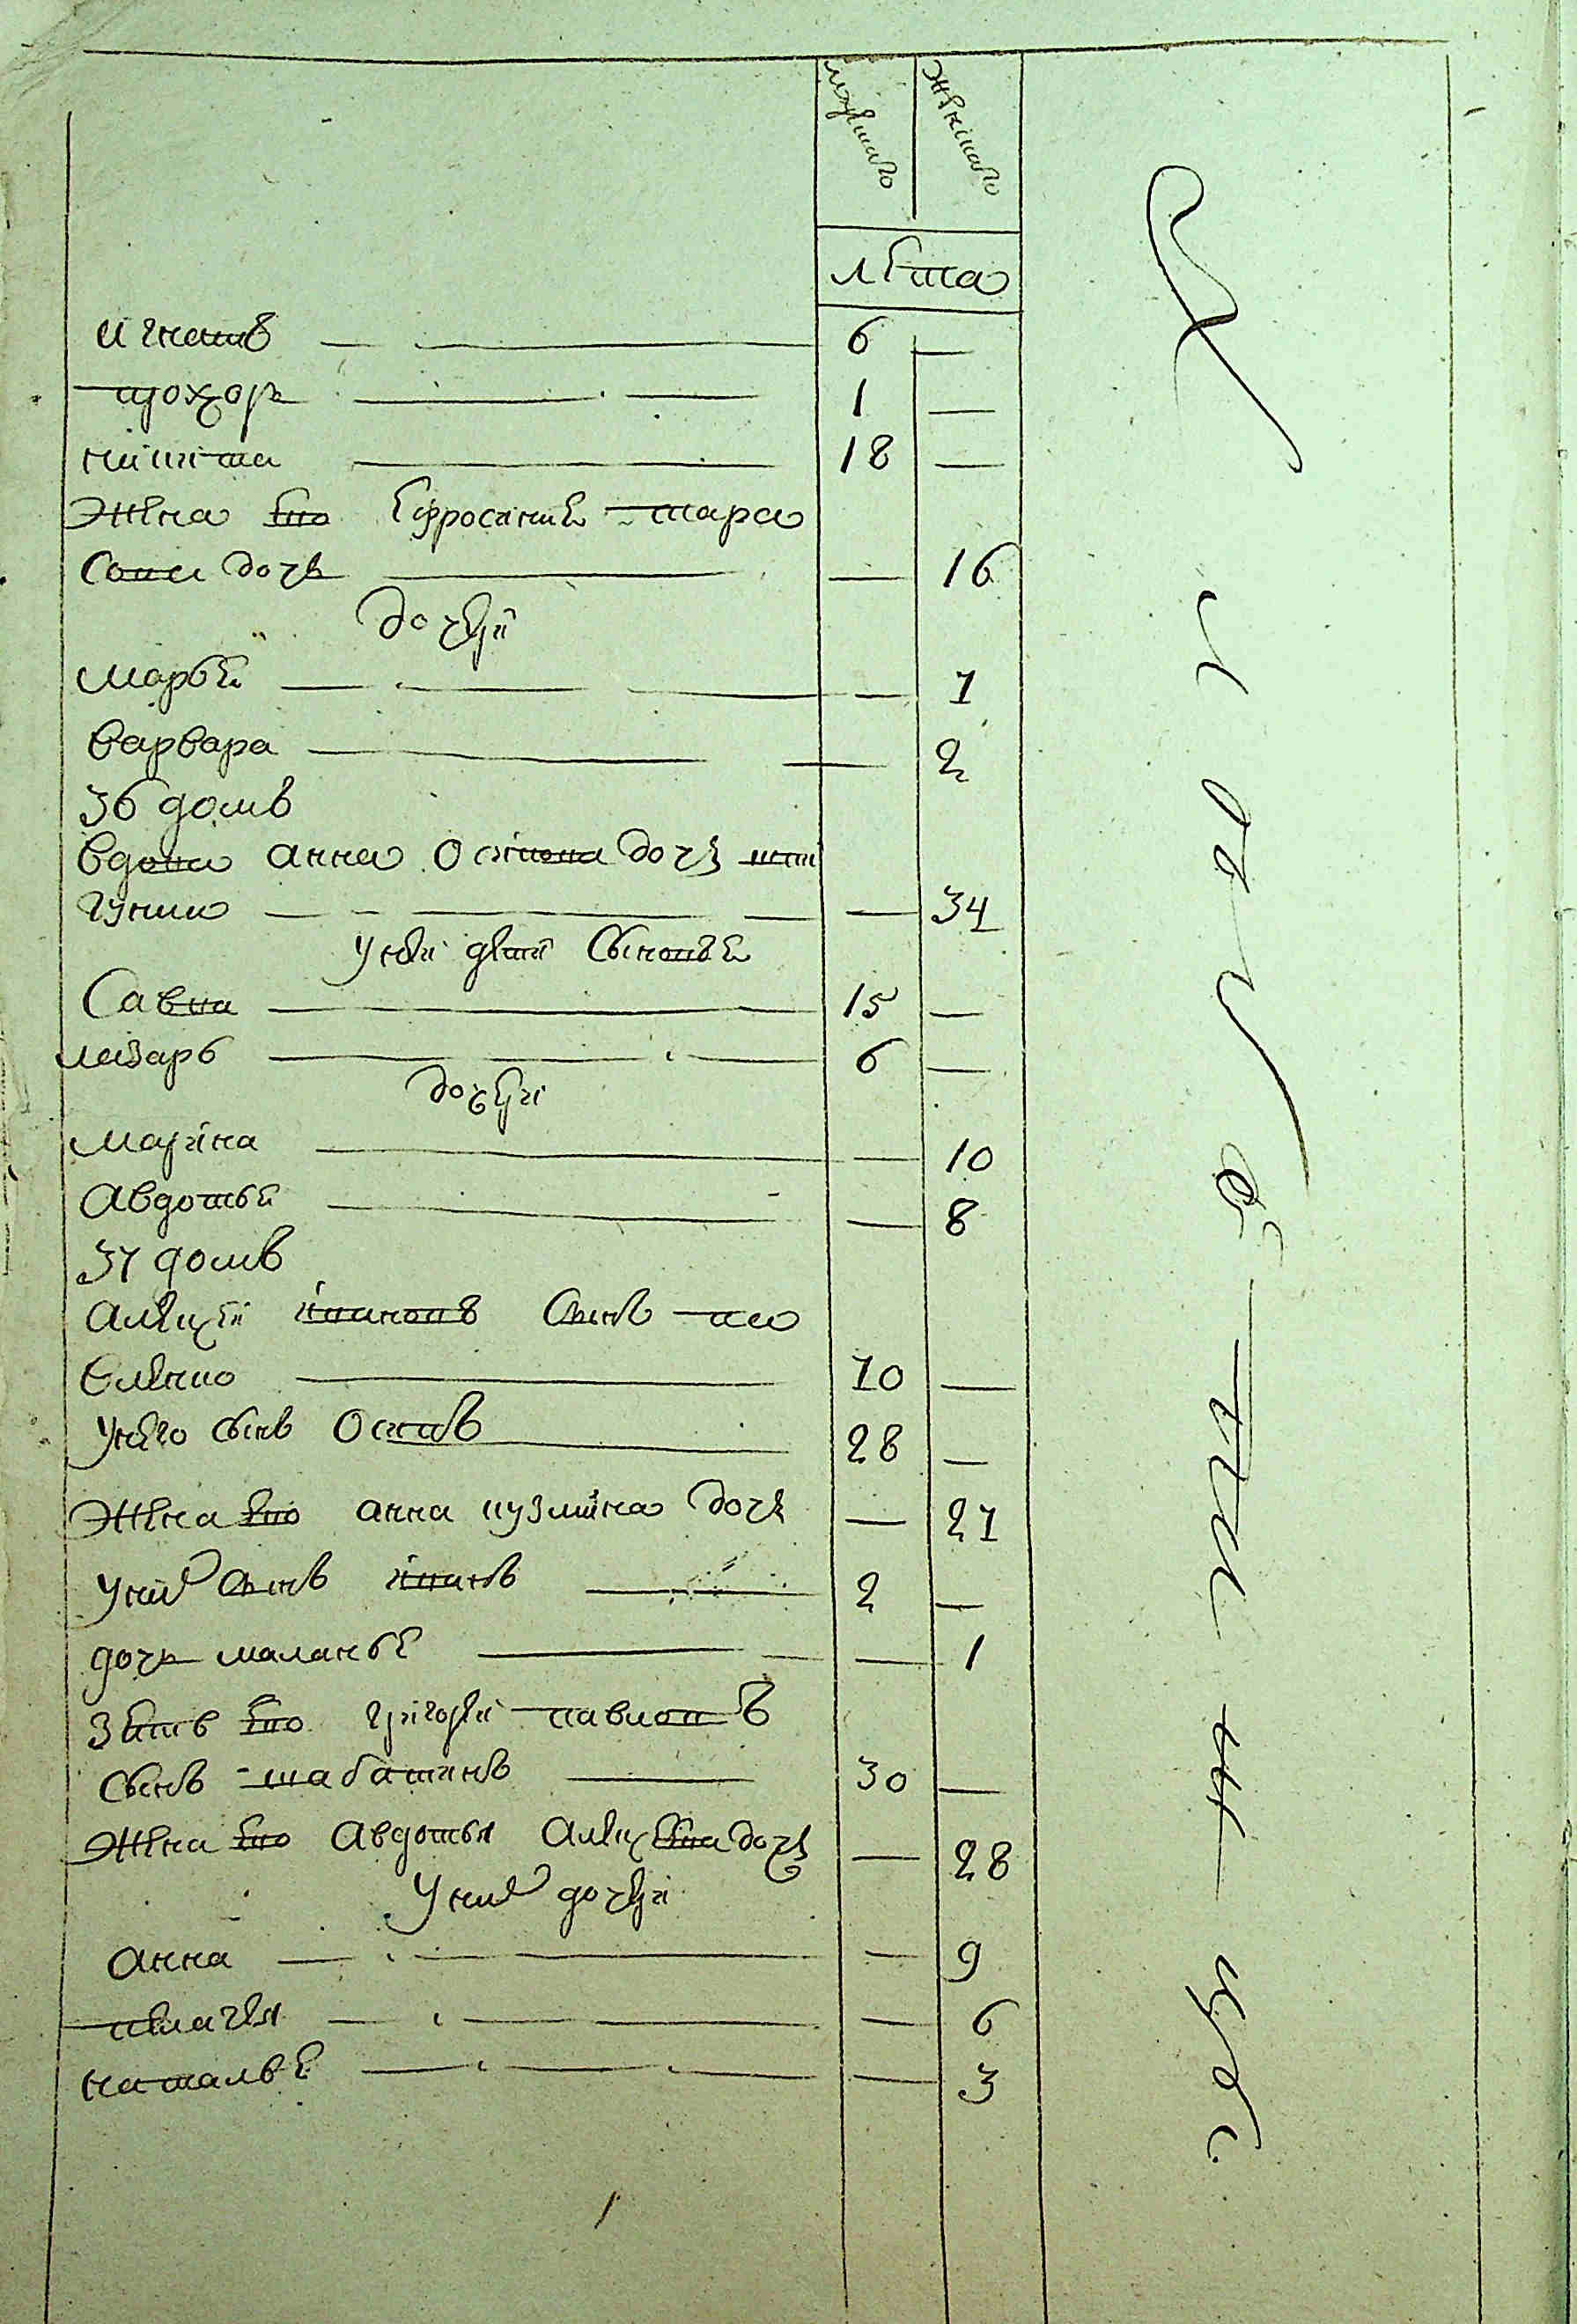 мужеска женска
лѣта
игнатъ — 6 —
прохоръ — 1 —
никита — 18 —
жена его Ефросиния тара
сова дочь — 16
дочери
марѳа — 7
варвара — 2
36 домъ
вдова анна осипова дочь
34
у неи дети сыновья
Савва — 15 —
лазарь — 6 —
дочери
марина — 10
Авдотья — 8
37 домъ
Алексей ивановъ сынъ
70 —
у него сынъ Осипъ 28 —
жена его анна кузмина дочь — 27
у них сынъ иванъ — 2 —
дочь маланья — 1
зять его григорей павловъ
сынъ шабатинъ — 30 —
жена его Авдотья Алексеева дочь — 28
у них дочери
анна — 9
пелагея — 6
наталья — 3